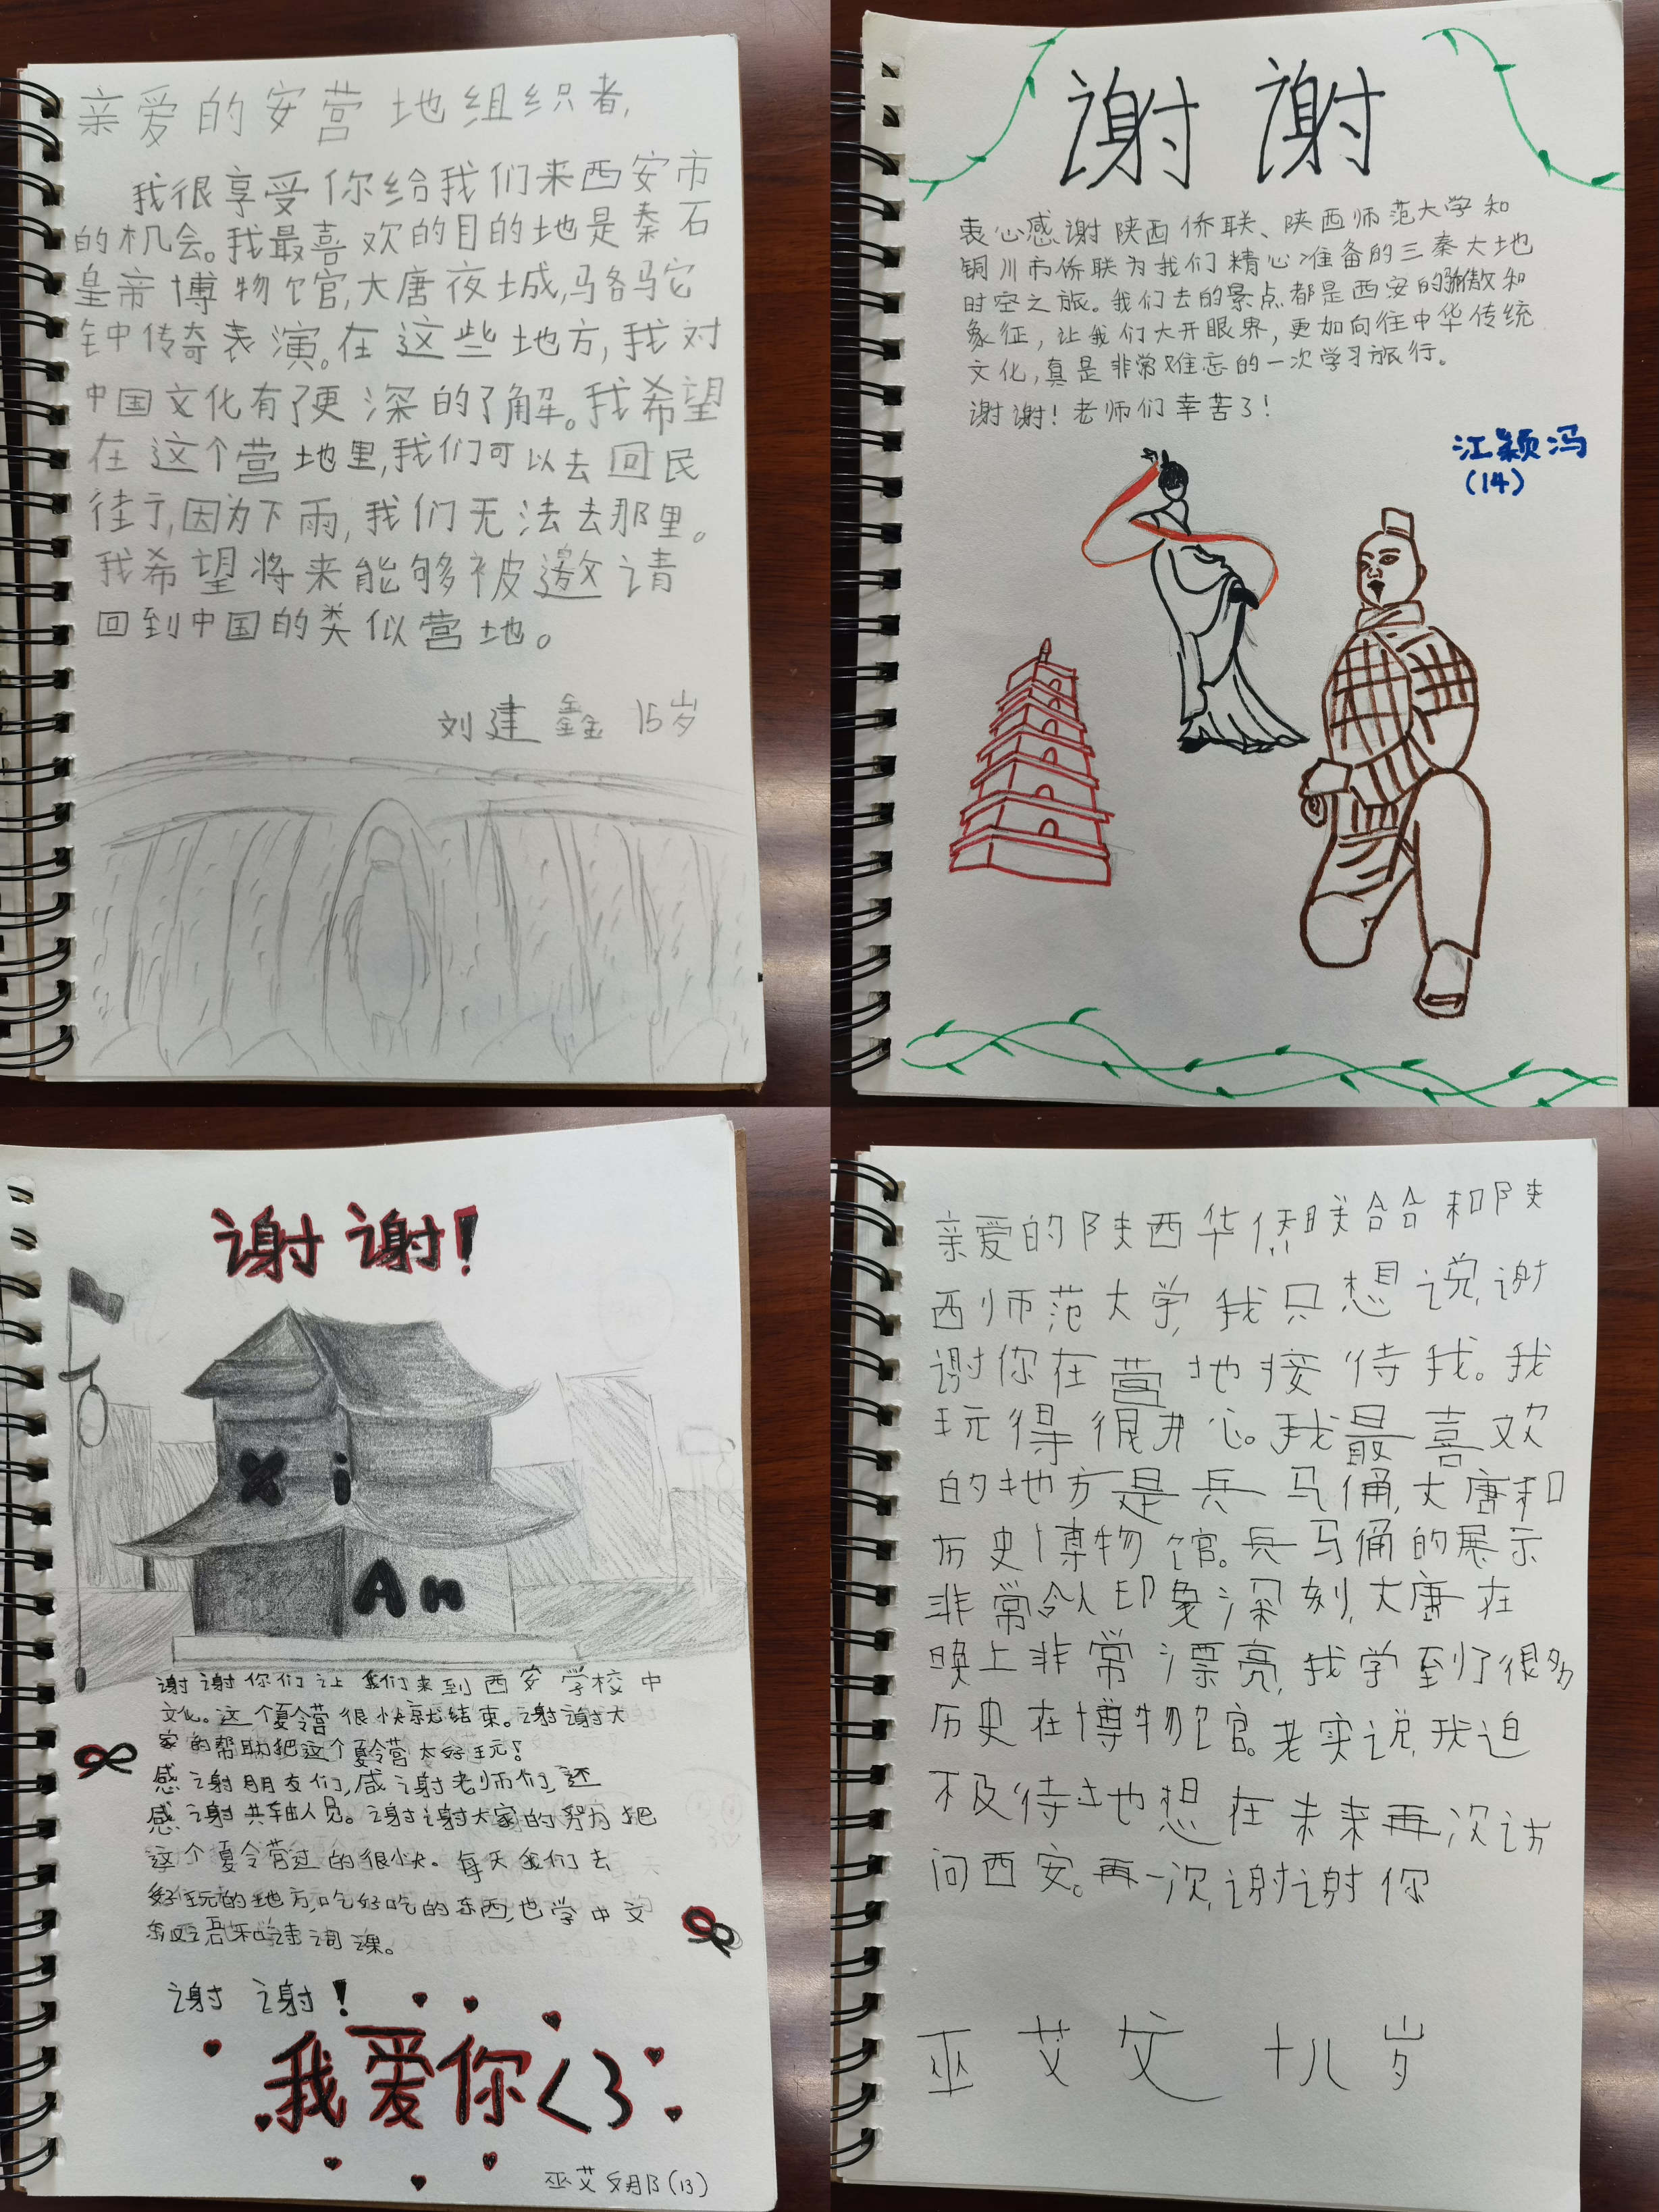 亲爱的安营地组织者,
我很享受你给我们来西安市
的机会。我最喜欢的目的地是秦石
皇帝博物馆,大唐夜城,骆驼
钟传奇表演。在这些地方,我对
中国文化有了更深的了解。我希望
在这个营地里,我们可以去回民
街,因为下雨,我们无法去那里。
我希望将来能够被邀请
回到中国的类似营地。
刘建鑫 15岁
谢谢
衷心感谢陕西侨联、陕西师范大学和
铜川市侨联为我们精心准备的三秦大地
时空之旅。我们去的景点都是西安的骄傲和
象征,让我们大开眼界,更加向往中华传统
文化,真是非常难忘的一次学习旅行。
谢谢!老师们幸苦了!
江颖冯
(14)
谢谢!
Xi
An
谢谢你们让我们来到西安学校中
文化。这个夏令营很快就结束。谢谢大
家的帮助把这个夏令营太好玩!
感谢朋友们,感谢老师们,还
感谢其他人员。谢谢大家的努力把
这个夏令营过的很快。每天我们去
好玩的地方,吃好吃的东西,也学中文
和诗词课。
谢谢!
我爱你<3
巫艾娜(13)
亲爱的陕西华侨联合会和陕
西师范大学,我只想说,谢
谢你在营地接待我。我
玩得很开心。我最喜欢
的地方是兵马俑,大唐和
历史博物馆。兵马俑的展示
非常令人印象深刻,大唐在
晚上非常漂亮,我学到了很多
历史在博物馆。老实说,我迫
不及待地想在未来再次访
问西安。再一次,谢谢你
巫艾 十八岁